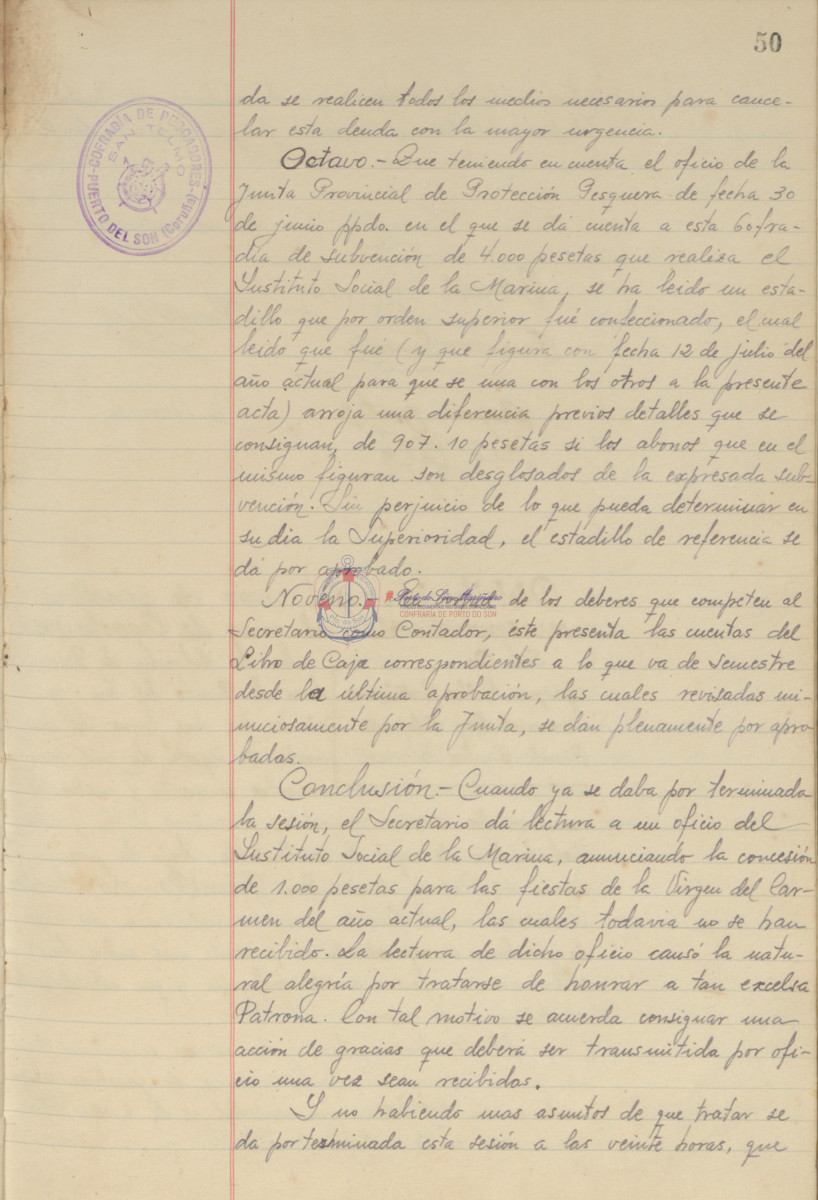 50
COFRADÍA DE PESCADORES
SAN TELMO
PUERTO DEL SON (Coruña)
da se realicen todos los medios necesarios para cance-
lar esta deuda con la mayor urgencia.
Octavo.- Que teniendo en cuenta el oficio de la
Junta Provincial de Protección Pesquera de fecha 30
de junio ppdo. en el que se dá cuenta a esta Cofra-
dia de subvención de 4.000 pesetas que realiza el
Instituto Social de la Marina, se ha leido un esta-
dillo que por orden superior fué confeccionado, el cual
leido que fué (y que figura con fecha 12 de julio del
año actual para que se una con los otros a la presente
acta) arroja una diferencia previos detalles que se
consignan, de 907.10 pesetas si los abonos que en el
mismo figuran son desglosados de la expresada sub-
vención. Sin perjuicio de lo que pueda determinar en
su dia la Superioridad, el estadillo de referencia se
dá por aprobado.
Noveno.- de los deberes que competen al
Secretario como Contador, éste presenta las cuentas del
Libro de Caja correspondientes a lo que va de semestre
desde la última aprobación, las cuales revisadas mi-
nuciosamente por la Junta, se dán plenamente por apro
badas.
Conclusión.- Cuando ya se daba por terminada
la sesión, el Secretario dá lectura a un oficio del
Instituto Social de la Marina, anunciando la concesión
de 1.000 pesetas para las fiestas de la Virgen del Car-
men del año actual, las cuales todavia no se han
recibido. La lectura de dicho oficio causó la natu-
ral alegría por tratarse de honrar a tan excelsa
Patrona. Con tal motivo se acuerda consignar una
acción de gracias que deberá ser transmitida por ofi-
cio una vez sean recibidas.
Y no habiendo mas asuntos de que tratar se
da por terminada esta sesión a las veinte horas, que
CONFRARIA DE PORTO DO SON